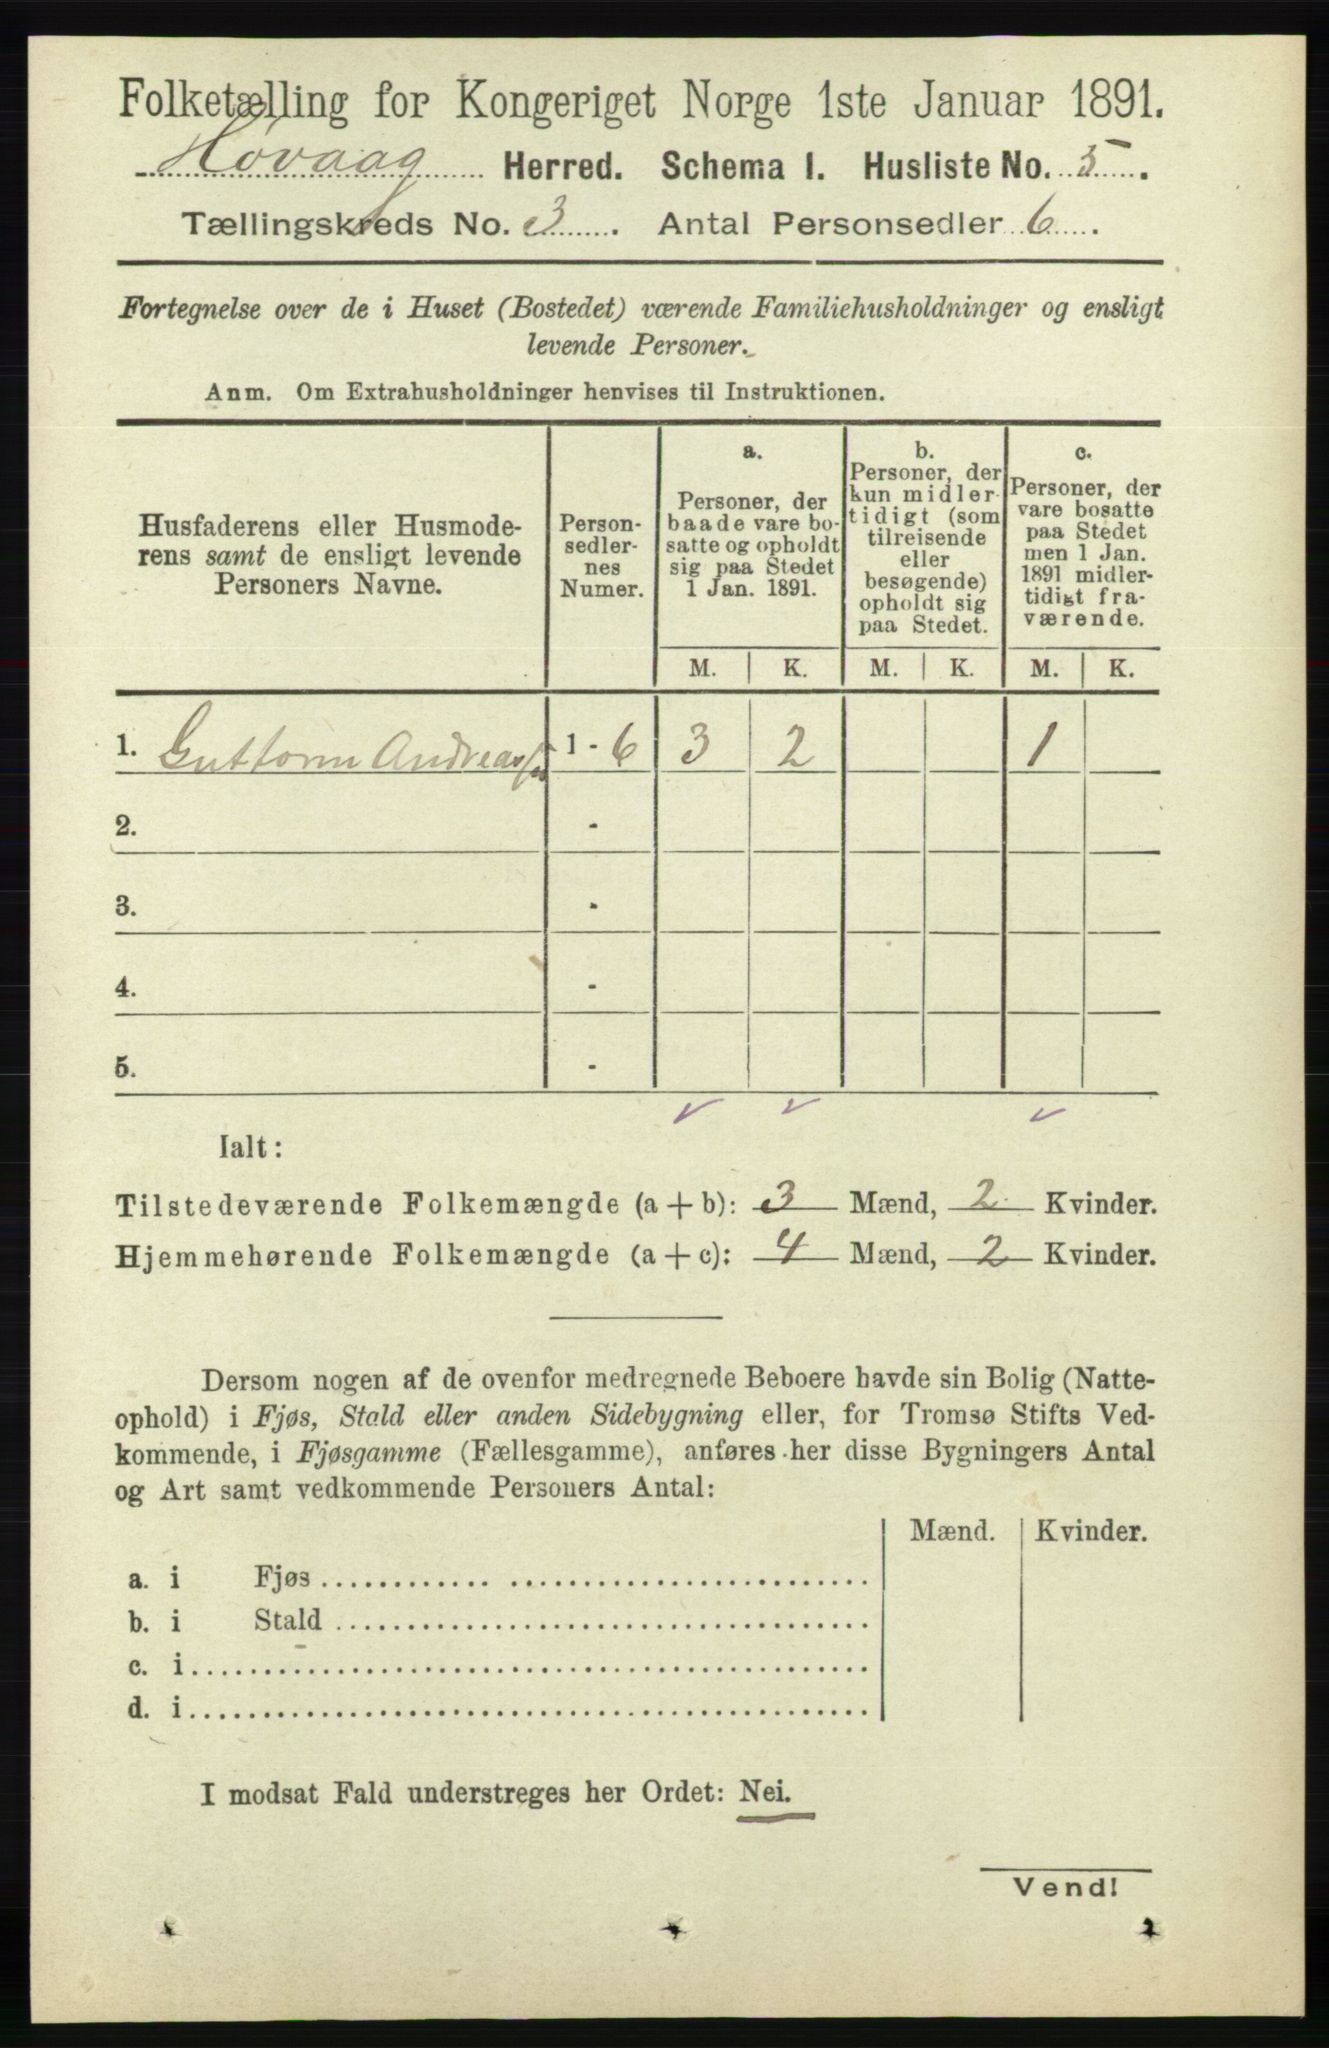 Folketælling for Kongeriget Norge 1ste Januar 1891.
Høvaag Herred. Schema I. Husliste No. 5.
Tællingskreds No. 3. Antal Personsedler 6.
Fortegnelse over de i Huset (Bostedet) værende Familiehusholdninger og ensligt
levende Personer.
Anm. Om Extrahusholdninger henvises til Instruktionen.
Husfaderens eller Husmode-
rens samt de ensligt levende
Personers Navne.
Person-
sedler-
nes
Numer.
a.
Personer, der
baade vare bo-
satte og opholdt
sig paa Stedet
1 Jan. 1891.
b.
Personer, der
kun midler-
tidigt (som
tilreisende
eller
besøgende)
opholdt sig
paa Stedet.
c.
Personer, der
vare bosatte
paa Stedet
men 1 Jan.
1891 midler-
tidigt fra-
værende.
M. K. M. K. M. K.
1. Guttorm Andreassen 1 - 6 3 2 1
2. -
3. -
4. -
5. -
Ialt:
Tilstedeværende Folkemængde (a + b): 3 Mænd, 2 Kvinder.
Hjemmehørende Folkemængde (a + c): 4 Mænd, 2 Kvinder.
Dersom nogen af de ovenfor medregnede Beboere havde sin Bolig (Natte-
ophold) i Fjøs, Stald eller anden Sidebygning eller, for Tromsø Stifts Ved-
kommende, i Fjøsgamme (Fællesgamme), anføres her disse Bygningers Antal
og Art samt vedkommende Personers Antal:
Mænd. Kvinder.
a. i Fjøs
b. i Stald
c. i
d. i
I modsat Fald understreges her Ordet: Nei.
Vend!